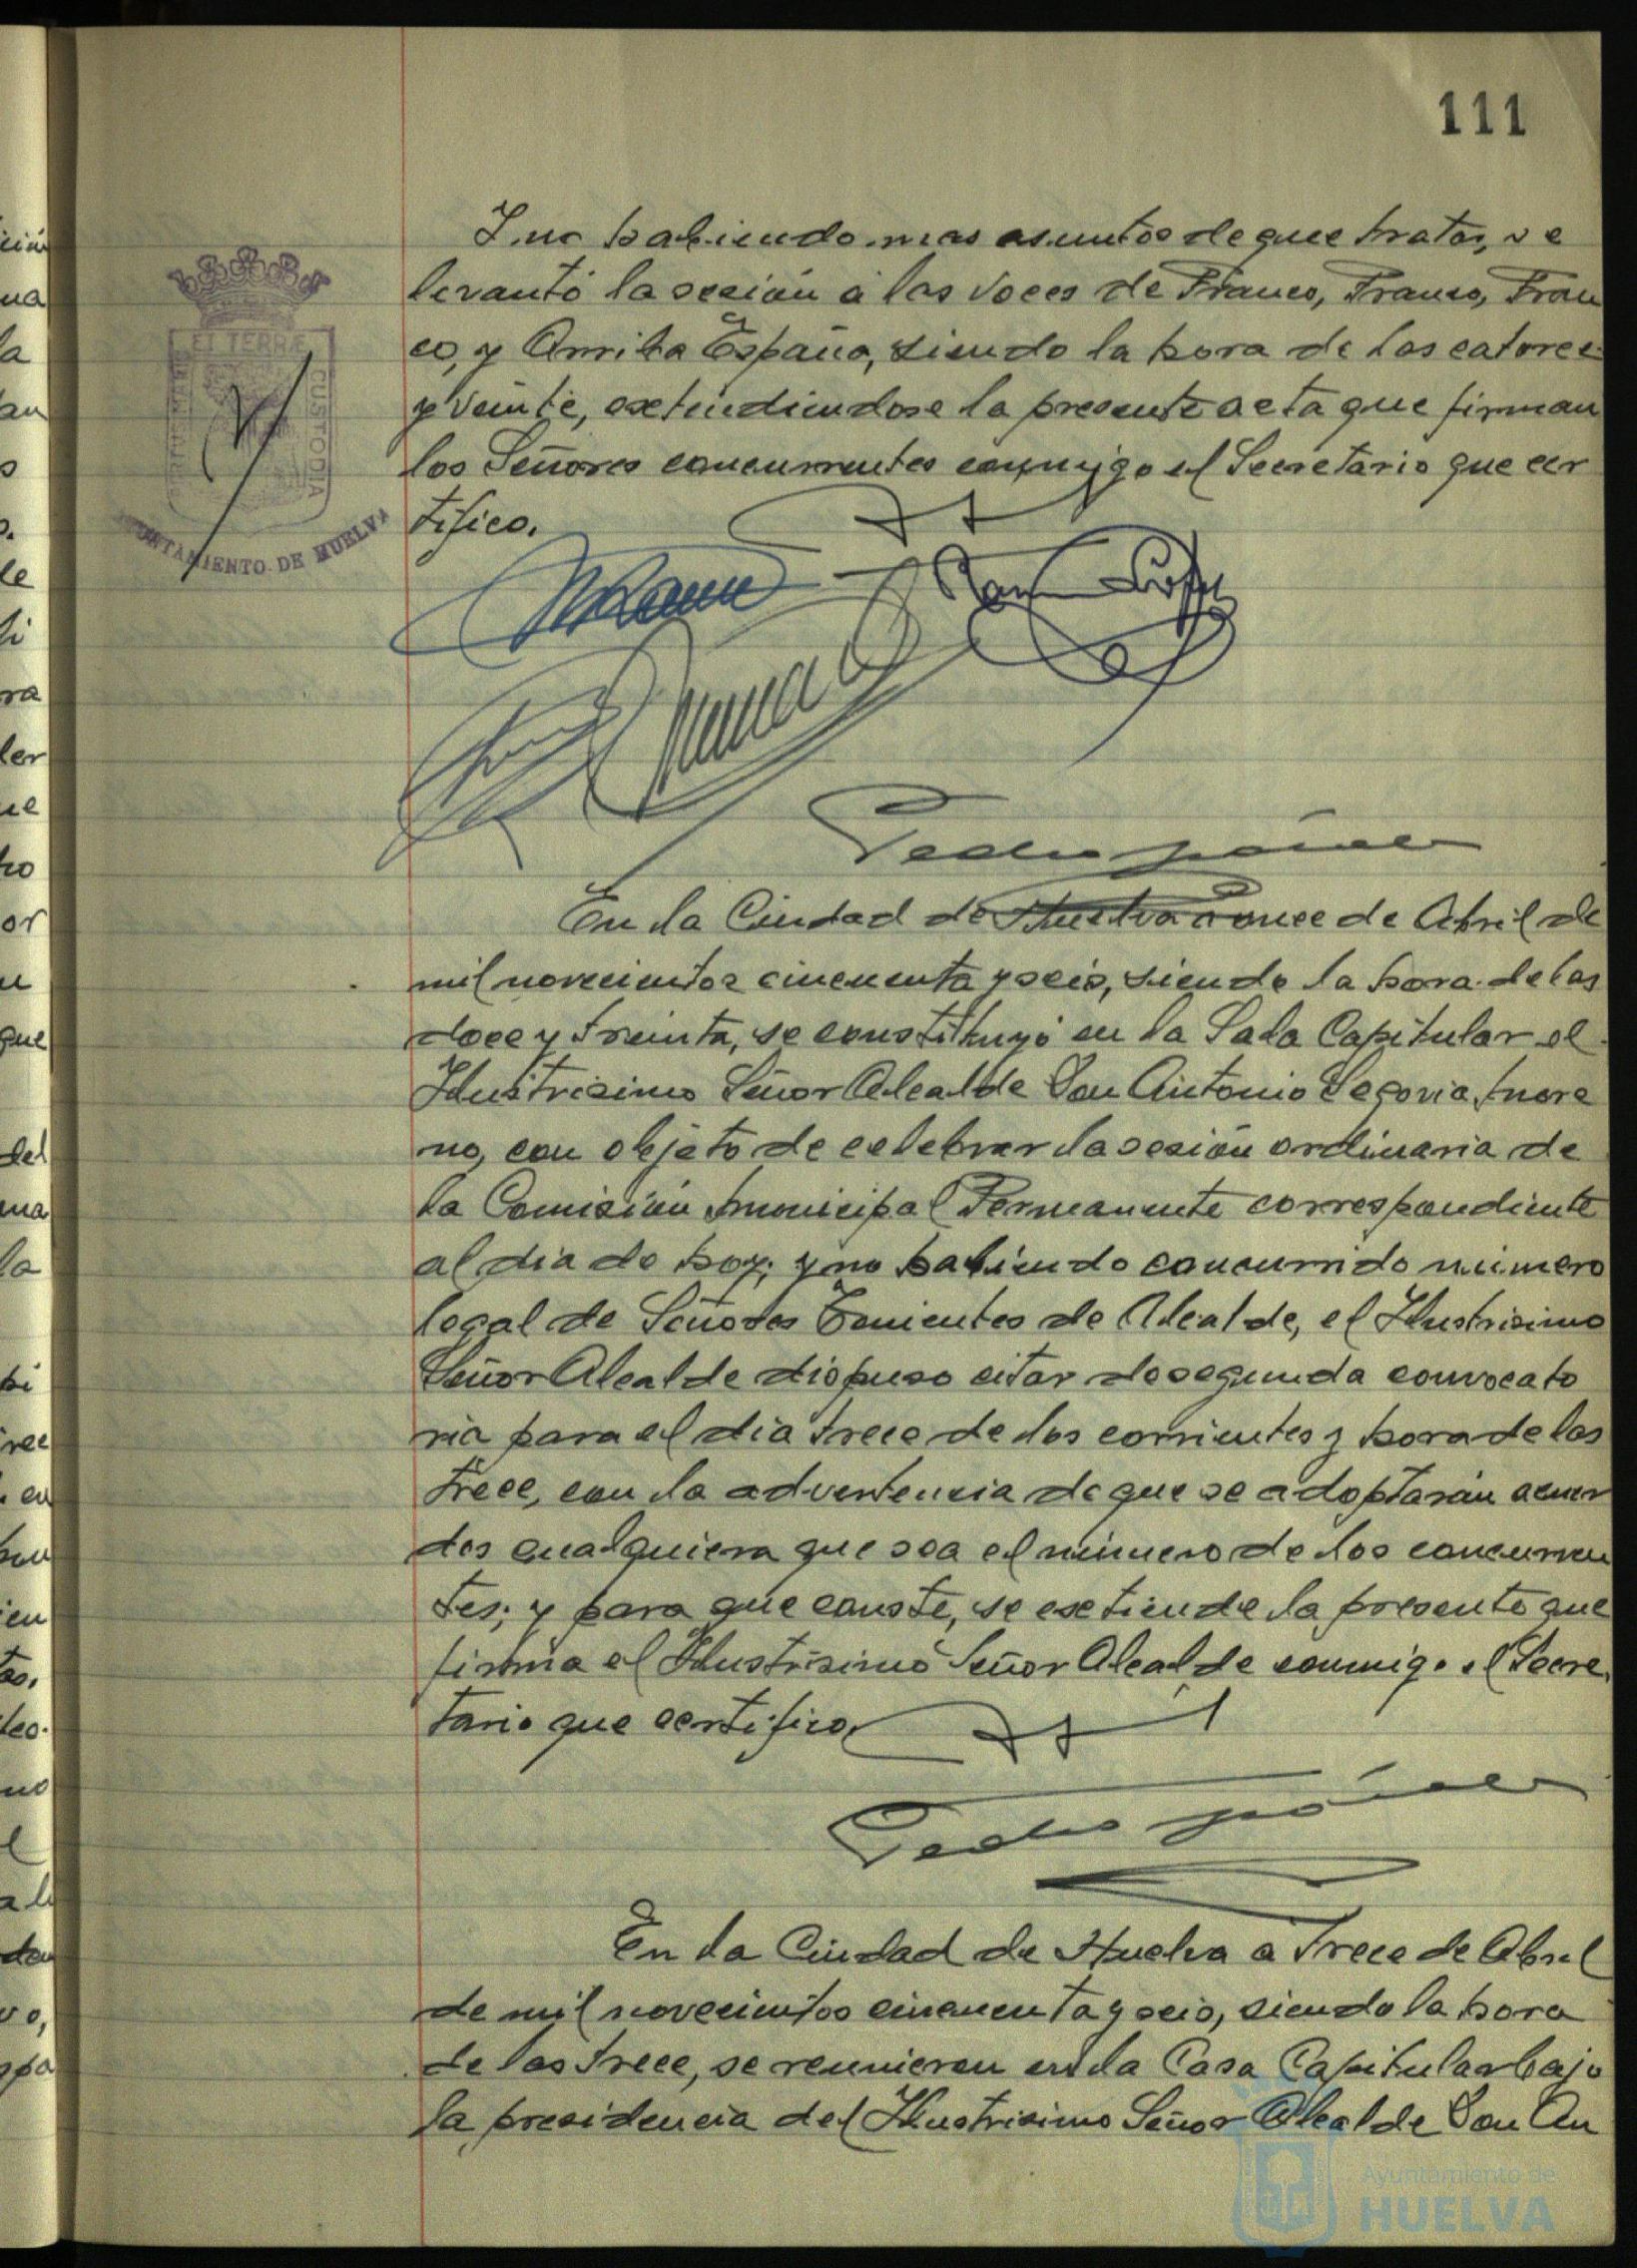 111
Y no habiendo mas asuntos de que tratar, se
levantó la sesión a las voces de Franco, Franco, Fran
co, y Arriba España, siendo la hora de las catorce
y veinte, extendiendose la presente acta que firman
los Señores concurrentes conmigo el Secretario que cer
tifico.
ET TERRÆ
CUSTODIA
AYUNTAMIENTO DE HUELVA
Pedro
En la Ciudad de Huelva a once de Abril de
mil novecientos cincuenta y seis, siendo la hora de las
doce y treinta, se constituyó en la Sala Capitular el
Ilustrisimo Señor Alcalde Don Antonio Segovia More
no, con objeto de celebrar la sesión ordinaria de
la Comisión Municipal Permanente correspondiente
al dia de hoy; y no habiendo concurrido número
legal de Señores Tenientes de Alcalde, el Ilustrisimo
Señor Alcalde dispuso citar de segunda convocato
ria para el dia trece de los corrientes y hora de las
trece, con la advertencia de que se adoptarán acuer
dos cualquiera que sea el número de los concurren
tes; y para que conste, se extiende la presente que
firma el Ilustrisimo Señor Alcalde conmigo el Secre
tario que certifico.
Pedro
En la Ciudad de Huelva a trece de Abril
de mil novecientos cincuenta y seis, siendo la hora
de las trece, se reunieron en la Casa Capitular bajo
la presidencia del Ilustrisimo Señor Alcalde Don An
Ayuntamiento de
HUELVA